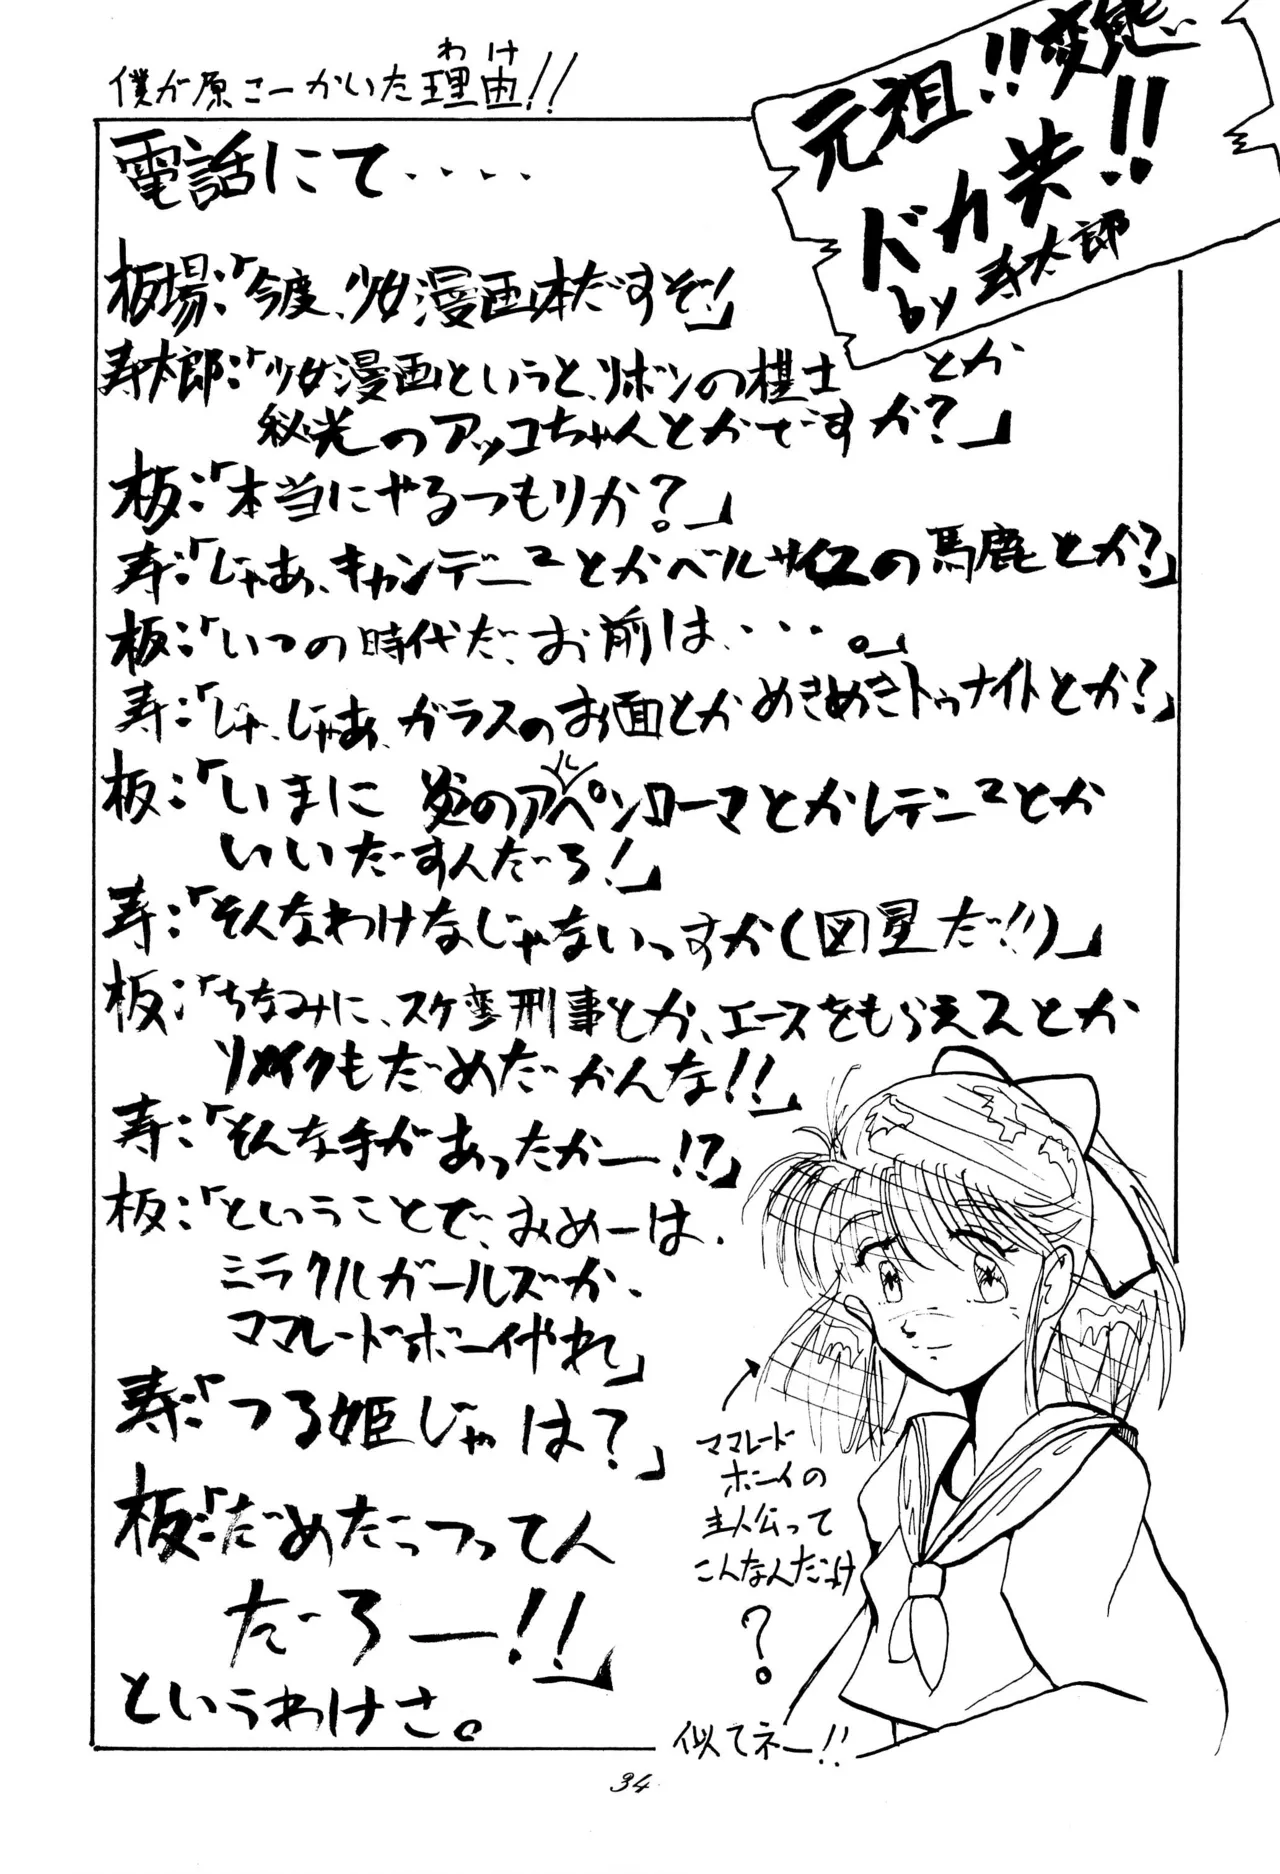 僕が原こーかいた理由!!
わけ
元祖!!変態
ドカ
by 寿太郎
電話にて・・・・
板場:「今度、少女漫画本だすぞ!」
寿太郎:「少女漫画というと、リボンの棋士とか
秘光のアッコちゃんとかですか?」
板:「本当にやるつもりか?」
寿:「じゃあ、キャンデニ²とかベルサイユの馬鹿とか?」
板:「いつの時代だ、お前は・・・。」
寿:「じゃ、じゃあ、ガラスのお面とかめきめきトゥナイトとか?」
板:「いまに 炎のアルペンローマとかレテニ²とか
いいだすんだろ!」
寿:「そんなわけなじゃないっすか(図星だ!!)」
板:「ちなみに、スケ変刑事とか、エースをもらえ2とか
リメイクもだめだかんな!!」
寿:「そんな手があったかー!?」
板:「ということで、おめーは、
ミラクルガールズか、
ママレードボーイやれ」
寿:「つる姫じゃは?」
板:「だめだっつってん
だろー!!」
というわけさ。
ママレード
ボーイの
主人公って
こんなんだっけ
?
似てネー!!
34